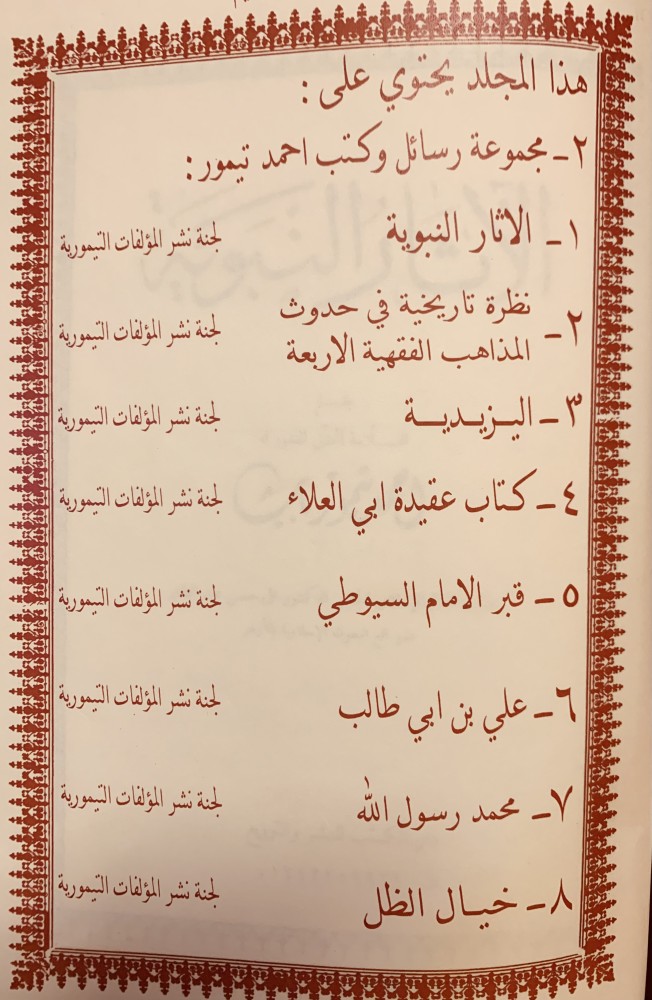 هذا المجلد يحتوي على :
٢ـ مجموعة رسائل وكتب احمد تيمور :
١ـ الاثار النبوية لجنة نشر المؤلفات التيمورية
٢ـ نظرة تاريخية في حدوث
المذاهب الفقهية الاربعة لجنة نشر المؤلفات التيمورية
٣ـ اليـزيـديـــة لجنة نشر المؤلفات التيمورية
٤ـ كتاب عقيدة ابي العلاء لجنة نشر المؤلفات التيمورية
٥ـ قبر الامام السيوطي لجنة نشر المؤلفات التيمورية
٦ـ علي بن ابي طالب لجنة نشر المؤلفات التيمورية
٧ـ محمد رسول الله لجنة نشر المؤلفات التيمورية
٨ـ خيـال الظل لجنة نشر المؤلفات التيمورية